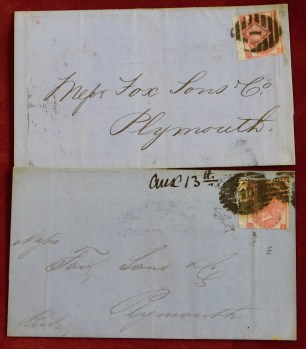 Messrs Fox Sons & Co.
Plymouth.
13th
Fox Sons & Co
Plymouth